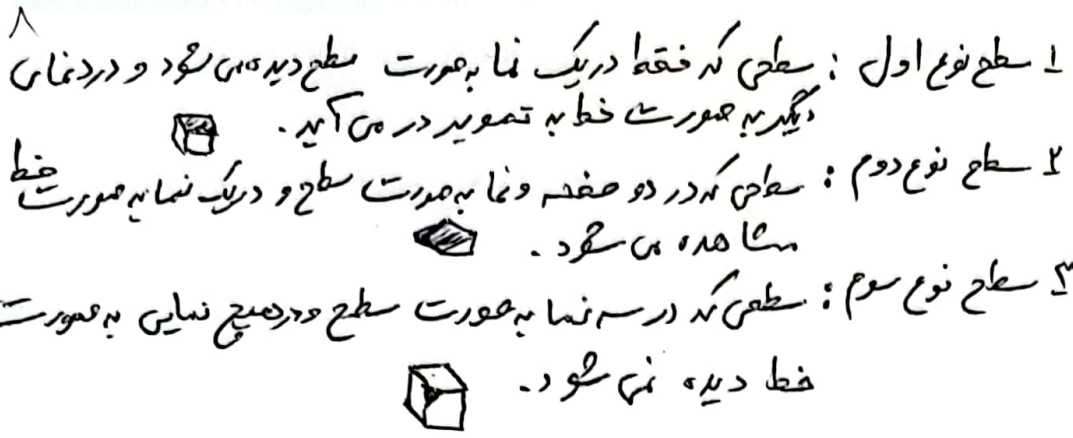 ۸
۱ سطح نوع اول : سطحی که فقط در یک نما به صورت سطح دیده می شود و در دو نمای
دیگر به صورت خط به تصویر در می آید.
۲ سطح نوع دوم : سطحی که در دو صفحه و نما به صورت سطح و در یک نما به صورت خط
مشاهده می شود.
۳ سطح نوع سوم : سطحی که در سه نما به صورت سطح و در هیچ نمایی به صورت
خط دیده نمی شود.